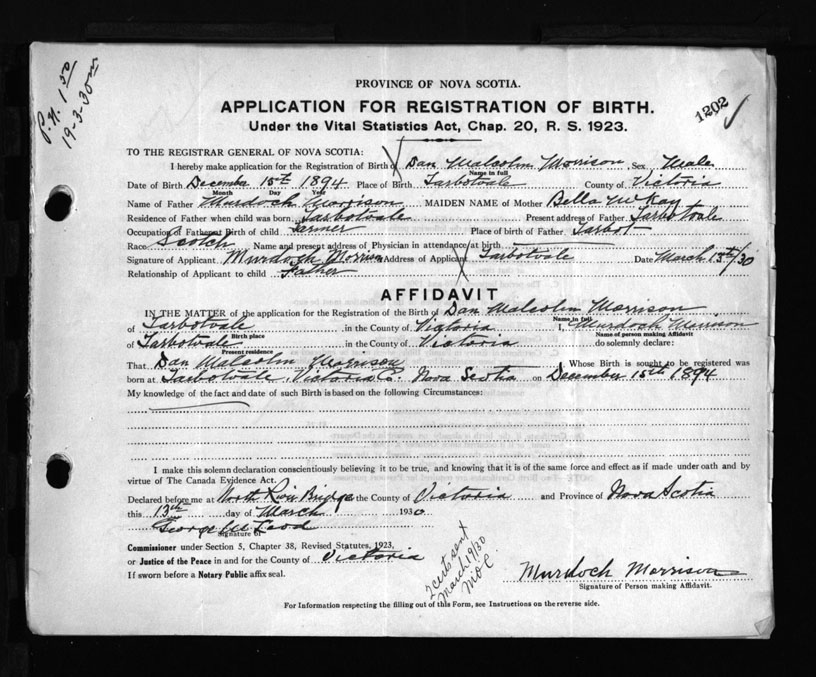 P.N. 1 50
19-3-30 m
1202
PROVINCE OF NOVA SCOTIA.
APPLICATION FOR REGISTRATION OF BIRTH.
Under the Vital Statistics Act, Chap. 20, R. S. 1923.
TO THE REGISTRAR GENERAL OF NOVA SCOTIA:
I hereby make application for the Registration of Birth of Dan Malcolm Morrison Sex Male
Name in full
Date of Birth December 15th 1894 Place of Birth Tarbotvale County of Victoria
Month Day Year
Name of Father Murdoch Morrison MAIDEN NAME of Mother Bella McKay
Residence of Father when child was born Tarbotvale Present address of Father Tarbotvale
Occupation of Father at Birth of child Farmer Place of birth of Father Tarbot
Race Scotch Name and present address of Physician in attendance at birth
Signature of Applicant Murdoch Morrison Address of Applicant Tarbotvale Date March 13th/30
Relationship of Applicant to child Father
AFFIDAVIT
IN THE MATTER of the application for the Registration of the Birth of Dan Malcolm Morrison
Name in full
of Tarbotvale in the County of Victoria I, Murdoch Morrison
Birth place Name of person making Affidavit
of Tarbotvale in the County of Victoria do solemnly declare:
Present residence
That Dan Malcolm Morrison Whose Birth is sought to be registered was
born at Tarbotvale, Victoria Co. Nova Scotia on December 15th 1894
My knowledge of the fact and date of such Birth is based on the following Circumstances:
I make this solemn declaration conscientiously believing it to be true, and knowing that it is of the same force and effect as if made under oath and by
virtue of The Canada Evidence Act.
Declared before me at North River Bridge the County of Victoria and Province of Nova Scotia
this 13th day of March 1930
George McLeod
Signature of
Commissioner under Section 5, Chapter 38, Revised Statutes, 1923,
or Justice of the Peace in and for the County of Victoria
If sworn before a Notary Public affix seal.
2 certs sent
March 19/30
M.O.C.
Murdoch Morrison
Signature of Person making Affidavit.
For Information respecting the filling out of this Form, see Instructions on the reverse side.